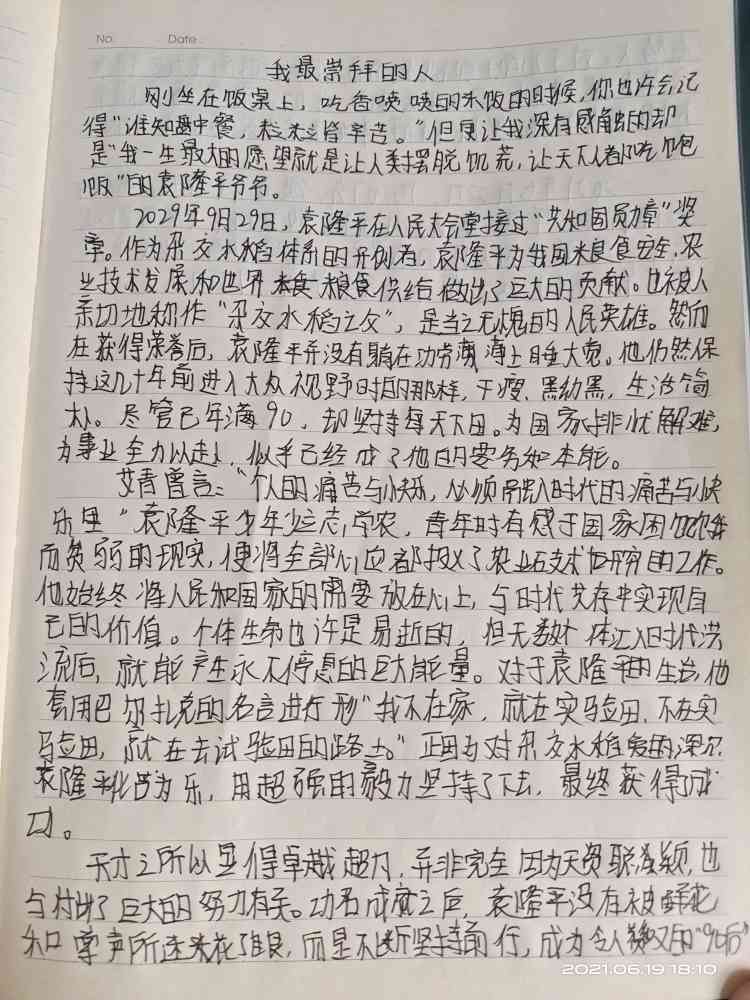 No.    Date
我最崇拜的人
刚坐在饭桌上，吃香喷喷的米饭的时候，你也许会记
得"谁知盘中餐，粒粒皆辛苦。"但更让我深有感触的却
是"我一生最大的愿望就是让人类摆脱饥荒，让天下人都吃饱
饭"的袁隆平爷爷。
2029年9月29日，袁隆平在人民大会堂接过"共和国勋章"奖
章。作为杂交水稻体系的开创者，袁隆平为我国粮食安全、农
业技术发展和世界粮食供给做出了巨大的贡献。也被人
亲切地称作"杂交水稻之父"，是当之无愧的人民英雄。然而
在获得荣誉后，袁隆平并没有躺在功劳簿上睡大觉。他仍然保
持这几十年前进入大众视野时的那样，干瘦、黑黝黑，生活简
朴。尽管已年满90，却坚持每天下田。为国家排忧解难，
为事业全力以赴，似乎已经成了他的义务和本能。
艾青曾言："个人的痛苦与欢乐，必须融入时代的痛苦与欢
乐里"袁隆平少年立志学农，青年时有感于国家困
而贫弱的现实，便将全部心血都投入了农业技术研究的工作。
他始终将人民和国家的需要放在心上，与时代共存中实现自
己的价值。个体生命也许是易逝的，但无数个体汇入时代洪
流后，就能产生永不停息的巨大能量。对于袁隆平的生活，他
套用巴尔扎克的名言进行形"我不在家，就在实验田，不在实
验田，就在去试验田的路上。"正因为对杂交水稻爱的深沉
袁隆平化苦为乐，用超强的毅力坚持了下去，最终获得成
功。
天才之所以显得卓越超凡，并非完全因为天资聪颖，也
与付出了巨大的努力有关。功名成就之后，袁隆平没有被鲜花
和掌声所迷花了眼，而是不断坚持前行，成为令人赞叹的"90后"
2021.06.19 18:10